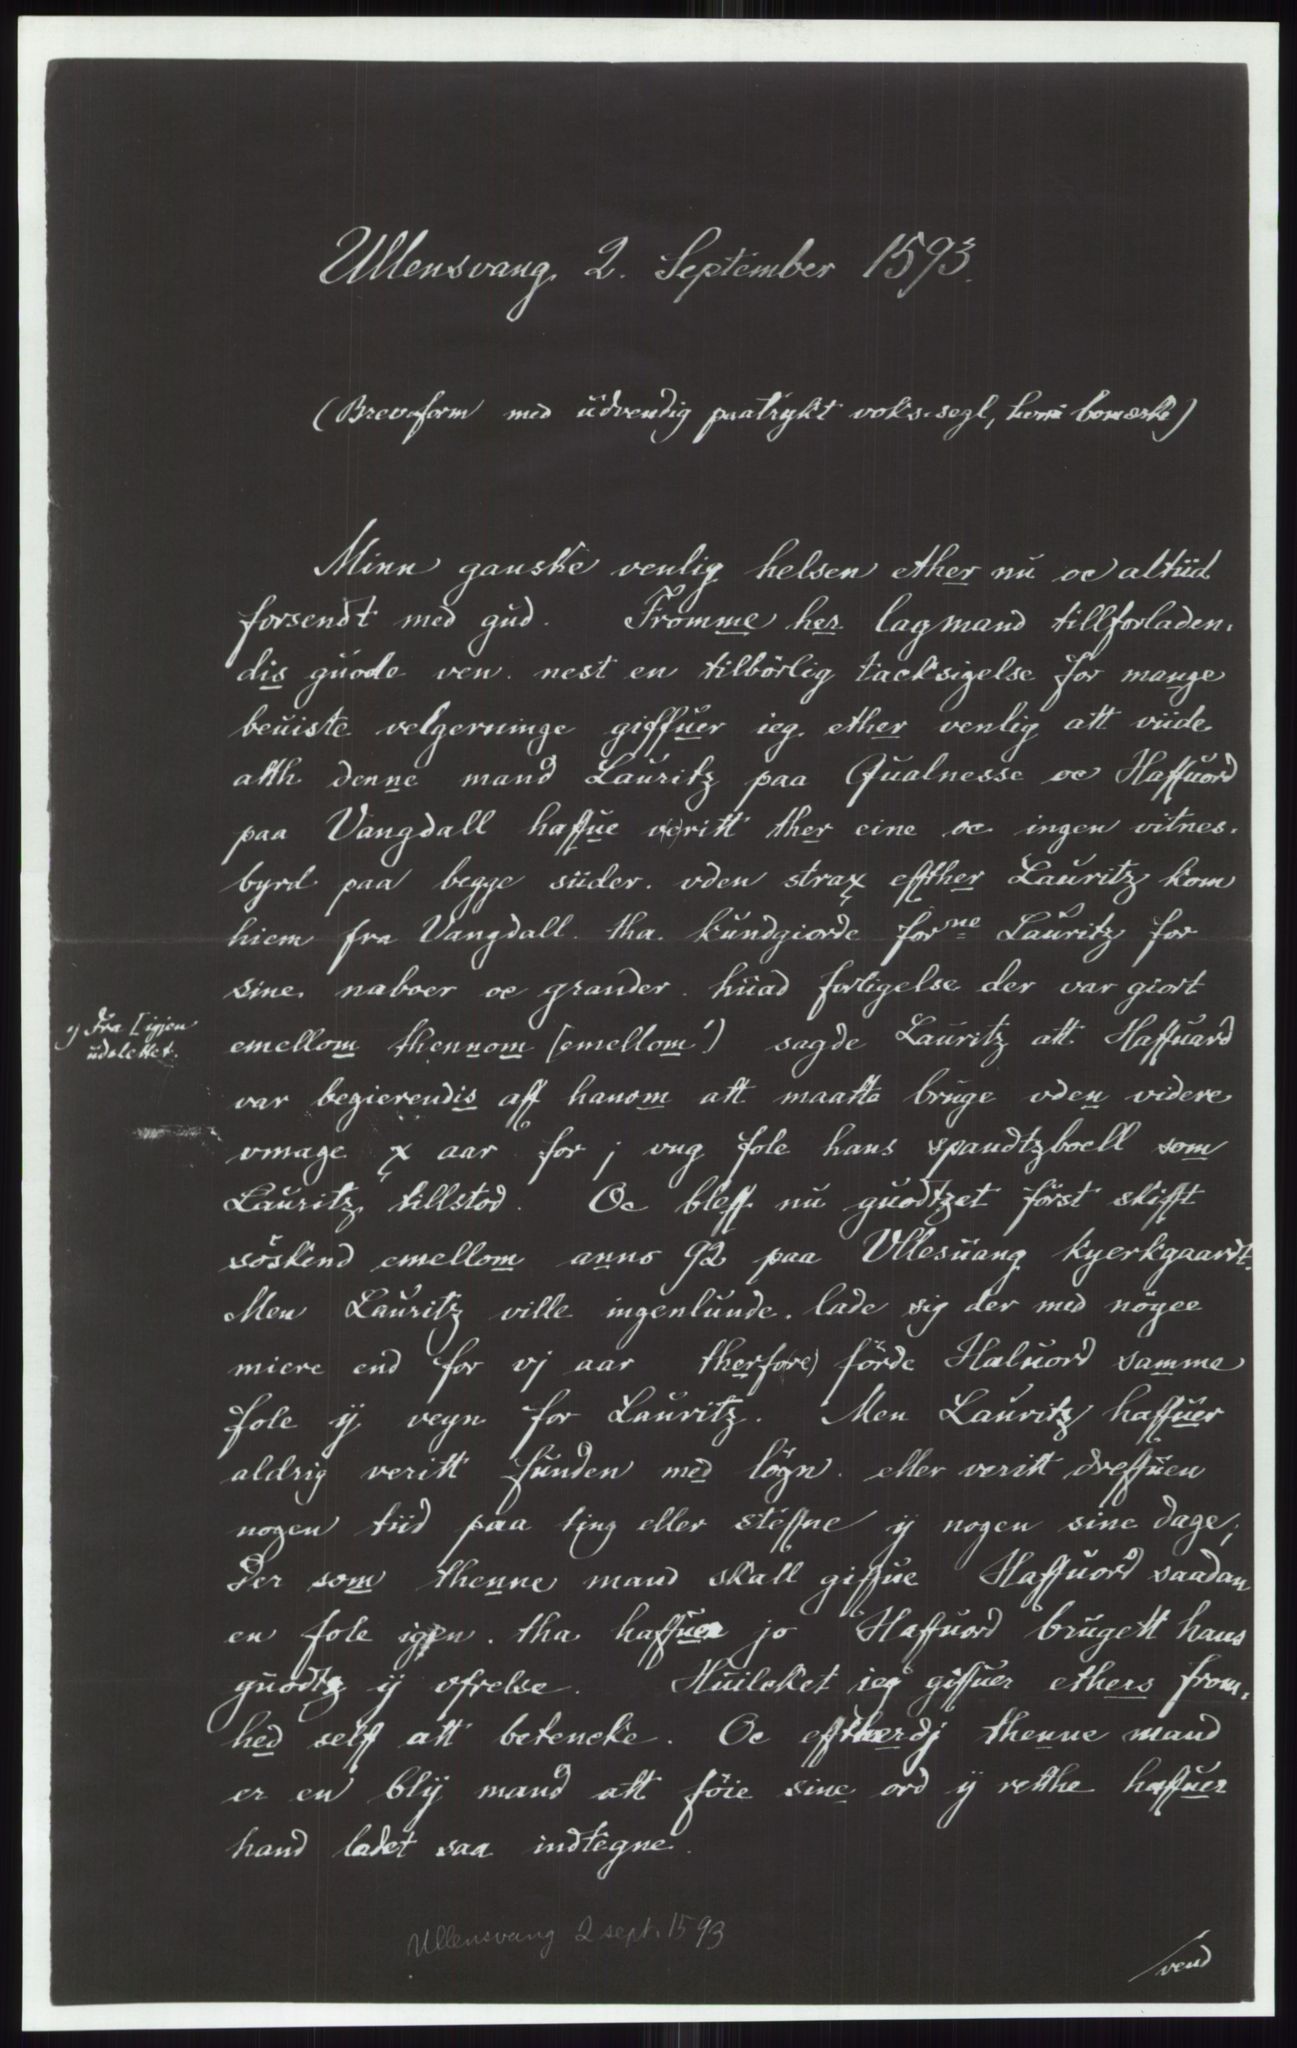 Ullensvang 2. September 1593.
(Brevform med udvendig paatrykt voks-segl, heri bomærke)
Minn ganske venlig helsen ether nu oc altiid
forsendt med gud. Fromme her lagmand tillforladen-
dis guode ven. nest en tilbörlig tacksigelse for mange
beuiste velgerninge giffuer ieg ether venlig att viide
atth denne mand Lauritz paa Qualnesse oc Haffuord
paa Vangdall haffue veritt ther eine oc ingen vitnes-
byrd paa begge siider. vden strax effther Lauritz kom
hiem fra Vangdall. tha. kundgiorde forne Lauritz for
sine naboer oc grander. huad fortigelse der var giort
emellom thennom [emellom¹) sagde Lauritz att Haffuard
¹) Fra [ igjen
udslettet.
var begierendis aff hanom att maatte bruge vden videre
vmage x aar for j vng fole hans spandtzboell som
Lauritz tillstod. Oc bleff nu guodtzet först skifft
söskend emellom anno 92 paa Vllesuang kyerkgaardt.
Men Lauritz ville ingenlunde. lade sig der med nöyee
miere end for vj aar therfore) förde Haluord samme
fole ÿ vegn for Lauritz. Men Lauritz haffuer
aldrig veritt funden med lögn. eller veritt dreffuen
nogen tiid paa ting eller steffne ÿ nogen sine dage;
Der som thenne mand skall giffue Haffuord saadan
en fole igen. tha haffuer jo Haffuord brugett hans
guodtz ÿ ofrelse. Huilcket ieg giffuer ethers from-
hed self att betencke. Oc efftherdj thenne mand
er en blÿ mand att föie sine ord ÿ retthe haffuer
hand ladet saa indtegne.
Ullensvang 2 sept. 1593
/vend